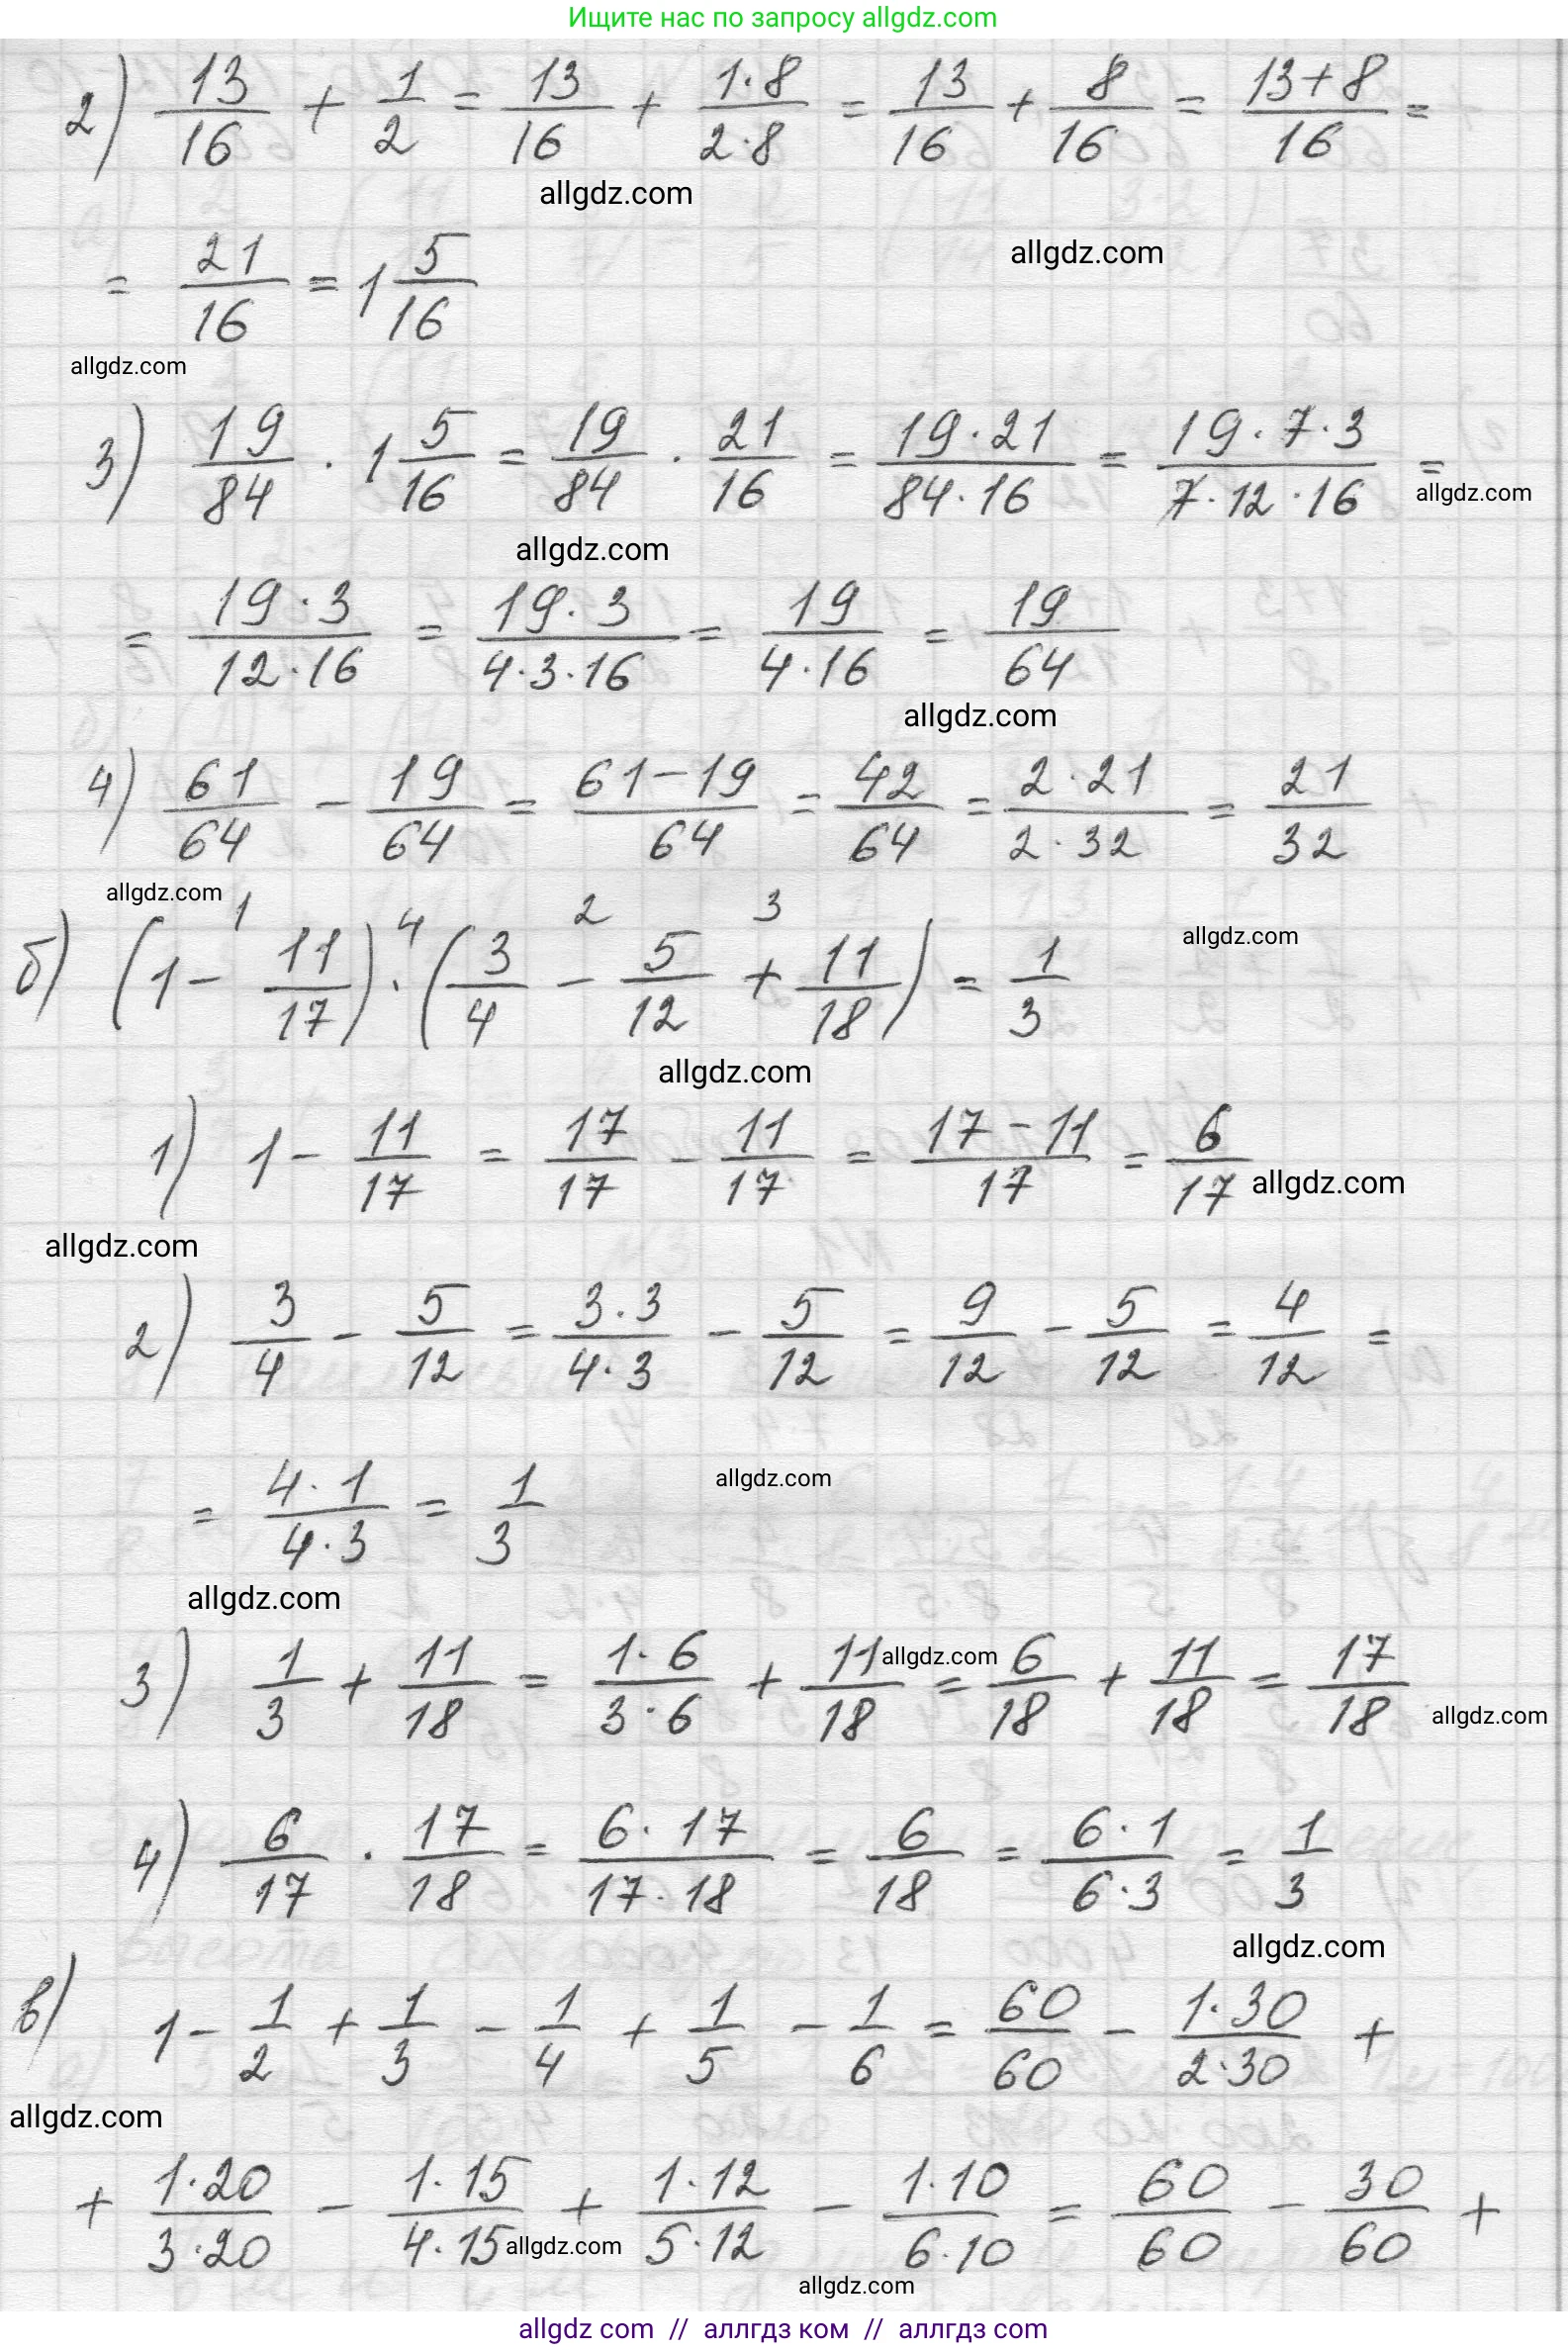 Ищите нас по запросу allgdz.com
2) 13/16 + 1/2 = 13/16 + 1·8/2·8 = 13/16 + 8/16 = 13+8/16 =
allgdz.com
allgdz.com
= 21/16 = 1 5/16
allgdz.com
3) 19/84 · 1 5/16 = 19/84 · 21/16 = 19·21/84·16 = 19·7·3/7·12·16 =
allgdz.com
allgdz.com
= 19·3/12·16 = 19·3/4·3·16 = 19/4·16 = 19/64
allgdz.com
4) 61/64 - 19/64 = 61-19/64 = 42/64 = 2·21/2·32 = 21/32
allgdz.com
1 4 2 3
allgdz.com
б) (1 - 11/17) · (3/4 - 5/12 + 11/18) = 1/3
allgdz.com
1) 1 - 11/17 = 17/17 - 11/17 = 17-11/17 = 6/17
allgdz.com
allgdz.com
2) 3/4 - 5/12 = 3·3/4·3 - 5/12 = 9/12 - 5/12 = 4/12 =
= 4·1/4·3 = 1/3
allgdz.com
allgdz.com
3) 1/3 + 11/18 = 1·6/3·6 + 11/18 = 6/18 + 11/18 = 17/18
allgdz.com
allgdz.com
4) 6/17 · 17/18 = 6·17/17·18 = 6/18 = 6·1/6·3 = 1/3
allgdz.com
в) 1 - 1/2 + 1/3 - 1/4 + 1/5 - 1/6 = 60/60 - 1·30/2·30 +
allgdz.com
+ 1·20/3·20 - 1·15/4·15 + 1·12/5·12 - 1·10/6·10 = 60/60 - 30/60 +
allgdz.com
allgdz.com
allgdz com // аллгдз ком // аллгдз com